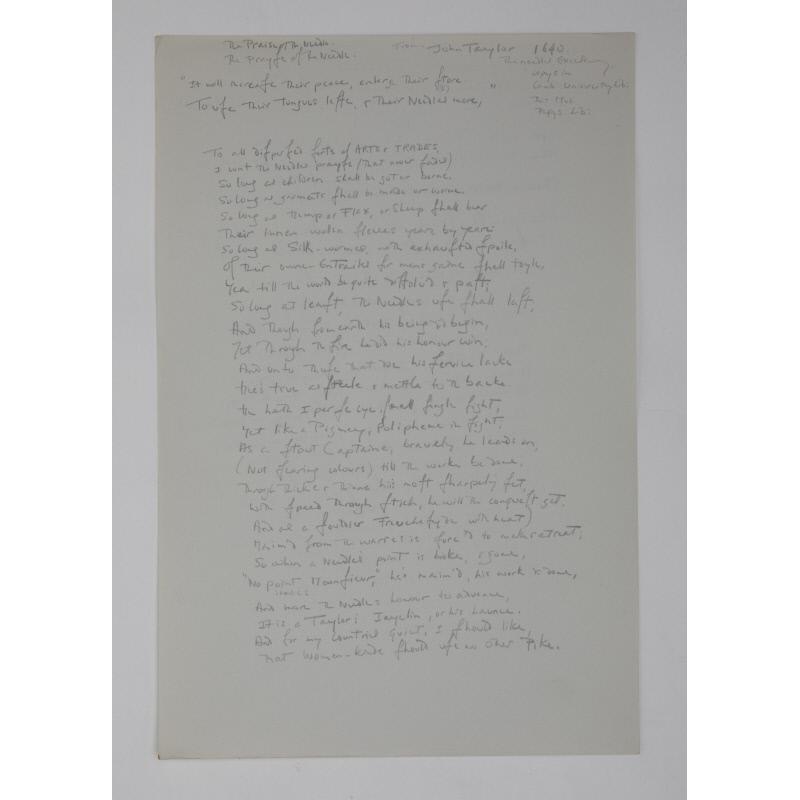 The Praise of The Needle.
The Prayse of the Needle.
from John Taylor 1640.
The needles Excellency
copys in
Camb University Lib:
Brit Mus
Pepys Lib:
"It will increase their peace, enlarge their store
To use their tongues lesse, & their Needles more,"
To all dispersed sorts of ARTS & TRADES,
I writ the Needles prayse (that never fades)
So long as children shall be got or borne,
So long as garments shall be made or worne,
So long as Hemp or Flax, or Sheep shall bear
Their linnen wollen fleeces yeare by yeare:
So long as Silk-wormes, with exhausted spoile,
Of their owne Entrailes for mans gaine shall toyle,
Yea till the world be quite dissolv'd & past,
So long at least, the Needles use shall last,
And though from earth his being did begin,
Yet through the fire he did his honour win:
And unto those that doe his service lacke
Hee's true as steele & mettle to the backe.
He hath I per se eye, small single sight,
Yet like a Pigmey, Polipheme in fight,
As a stout Captaine, bravely he leads on,
(Not fearing colours) till the worke be done,
Through thicke & thinne hee's most sharpely set,
With speed through stitch, he will the conquest get.
And as a souldier Frenchefyde with heat)
Maim'd from the warres is forc'd to make retreat;
So when a Needle's point is broke, & gone,
"No point Mounsieur," he's maim'd, his work is done,
And more the Needles honour to advance,
It is a Taylor's Javelin, or his Launce.
And for my Countries quiet, I should like,
That Women-kinde should use no other Pike.